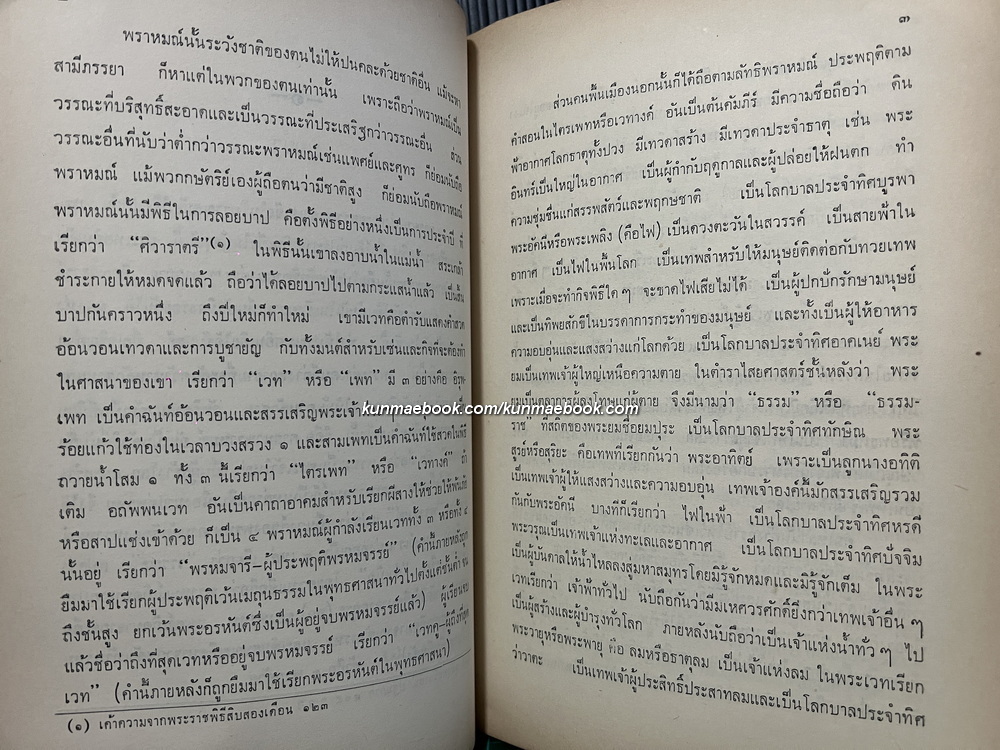 พราหมณ์นั้นระวังชาติของตนไม่ให้ปนคละด้วยชาติอื่น แม้จะหา
สามีภรรยา ก็หาแต่ในพวกของตนเท่านั้น เพราะถือว่าพราหมณ์เป็น
วรรณะที่บริสุทธิ์สะอาดและเป็นวรรณะที่ประเสริฐกว่าวรรณะอื่น ส่วน
วรรณะอื่นที่นับว่าต่ำกว่าวรรณะพราหมณ์เช่นแพศย์และศูทร ก็ย่อมนับถือ
พราหมณ์ แม้พวกกษัตริย์เองผู้ถือตนว่ามีชาติสูง ก็ย่อมนับถือพราหมณ์
พราหมณ์นั้นมีพิธีในการลอยบาป คือตั้งพิธีอย่างหนึ่งเป็นการประจำปี ที่
เรียกว่า “ศิวาราตรี”(๑) ในพิธีนั้นเขาลงอาบน้ำในแม่น้ำ สระเกล้า
ชำระกายให้หมดจดแล้ว ถือว่าได้ลอยบาปไปตามกระแสน้ำแล้ว เป็นสิ้น
บาปกันคราวหนึ่ง ถึงปีใหม่ก็ทำใหม่ เขามีเวทคือตำรับแสดงคำสวด
อ้อนวอนเทวดาและการบูชายัญ กับทั้งมนต์สำหรับเซ่นและกิจที่จะต้องทำ
ในศาสนาของเขา เรียกว่า “เวท” หรือ “เพท” มี ๓ อย่างคือ อิรุพ-
เพท เป็นคำฉันท์อ้อนวอนและสรรเสริญพระเจ้า
ร้อยแก้วใช้ท่องในเวลาบวงสรวง ๑ และสามเพทเป็นคำฉันท์ใช้สวดในพิธี
ถวายน้ำโสม ๑ ทั้ง ๓ นี้เรียกว่า “ไตรเพท” หรือ “เวทางค์” ถ้า
เติม อถัพพนเวท อันเป็นคาถาอาคมสำหรับเรียกผีสางให้ช่วยให้พ้นภัย
หรือสาปแช่งเข้าด้วย ก็เป็น ๔ พราหมณ์ผู้กำลังเรียนเวททั้ง ๓ หรือทั้ง ๔
นั้นอยู่ เรียกว่า “พรหมจารี–ผู้ประพฤติพรหมจรรย์” (คำนี้ภายหลังถูก
ยืมมาใช้เรียกผู้ประพฤติเว้นเมถุนธรรมในพุทธศาสนาทั่วไปตั้งแต่ชั้นต่ำ จน
ถึงชั้นสูง ยกเว้นพระอรหันต์ซึ่งเป็นผู้อยู่จบพรหมจรรย์แล้ว) ผู้เรียนจบ
แล้วชื่อว่าถึงที่สุดเวทหรืออยู่จบพรหมจรรย์ เรียกว่า “เวทคู–ผู้ถึงที่สุด
เวท” (คำนี้ภายหลังก็ถูกยืมมาใช้เรียกพระอรหันต์ในพุทธศาสนา)
(๑) เค้าความจากพระราชพิธีสิบสองเดือน ๑๒๓
๓
ส่วนคนพื้นเมืองนอกนั้นก็ได้ถือตามลัทธิพราหมณ์ ประพฤติตาม
คำสอนในไตรเพทหรือเวทางค์ อันเป็นต้นคัมภีร์ มีความชื่อถือว่า ดิน
ฟ้าอากาศโลกธาตุทั้งปวง มีเทวดาสร้าง มีเทวดาประจำธาตุ เช่น พระ
อินทร์เป็นใหญ่ในอากาศ เป็นผู้กำกับฤดูกาลและผู้ปล่อยให้ฝนตก ทำ
ความชุ่มชื่นแก่สรรพสัตว์และพฤกษชาติ เป็นโลกบาลประจำทิศบูรพา
พระอัคนีหรือพระเพลิง (คือไฟ) เป็นดวงตะวันในสวรรค์ เป็นสายฟ้าใน
อากาศ เป็นไฟในพื้นโลก เป็นเทพสำหรับให้มนุษย์ติดต่อกับทวยเทพ
เพราะเมื่อจะทำกิจพิธีใด ๆ จะขาดไฟเสียไม่ได้ เป็นผู้ปกปักรักษามนุษย์
และเป็นทิพยสักขีในบรรดาการกระทำของมนุษย์ และทั้งเป็นผู้ให้อาหาร
ความอบอุ่นและแสงสว่างแก่โลกด้วย เป็นโลกบาลประจำทิศอาคเนย์ พระ
ยมเป็นเทพเจ้าผู้ใหญ่เหนือความตาย ในตำราไสยศาสตร์ชั้นหลังว่า พระ
ยมเป็นตุลาการผู้ลงโทษแก่ผู้ตาย จึงมีนามว่า “ธรรม” หรือ “ธรรม-
ราช” ที่สถิตของพระยมชื่อยมปุระ เป็นโลกบาลประจำทิศทักษิณ พระ
สูรย์หรือสุริยะ คือเทพที่เรียกกันว่า พระอาทิตย์ เพราะเป็นลูกนางอทิติ
เป็นเทพเจ้าผู้ให้แสงสว่างและความอบอุ่น เทพเจ้าองค์นี้มักสรรเสริญรวม
กันกับพระอัคนี บางทีก็เรียกว่า ไฟในฟ้า เป็นโลกบาลประจำทิศหรดี
พระวรุณเป็นเทพเจ้าแห่งทะเลและอากาศ เป็นโลกบาลประจำทิศปัจจิม
เป็นผู้บันดาลให้น้ำไหลลงสู่มหาสมุทรโดยมิรู้จักหมดและมิรู้จักเต็ม ในพระ
เวทเรียกว่า เจ้าฟ้าทั่วไป นับถือกันว่ามีมเหศวรศักดิ์ยิ่งกว่าเทพเจ้าอื่น ๆ
เป็นผู้สร้างและผู้บำรุงทั่วโลก ภายหลังนับถือว่าเป็นเจ้าแห่งน้ำทั่ว ๆ ไป
พระวายุหรือพระพายุ คือ ลมหรือธาตุลม เป็นเจ้าแห่งลม ในพระเวทเรียก
ว่าวาตะ เป็นเทพเจ้าผู้ประสิทธิ์ประสาทลมและเป็นโลกบาลประจำทิศ
kunmaebook.com/kunmaebook.com